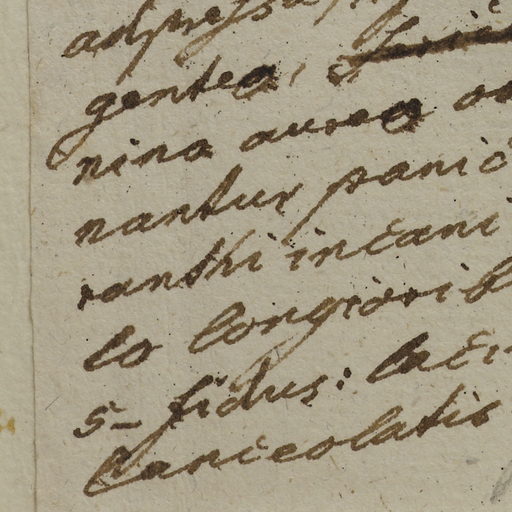 adpressa
gentea,
nina aurea
nantur panic
ranthi incani
lo longiorib
5-fidus: laci
lanceolatis